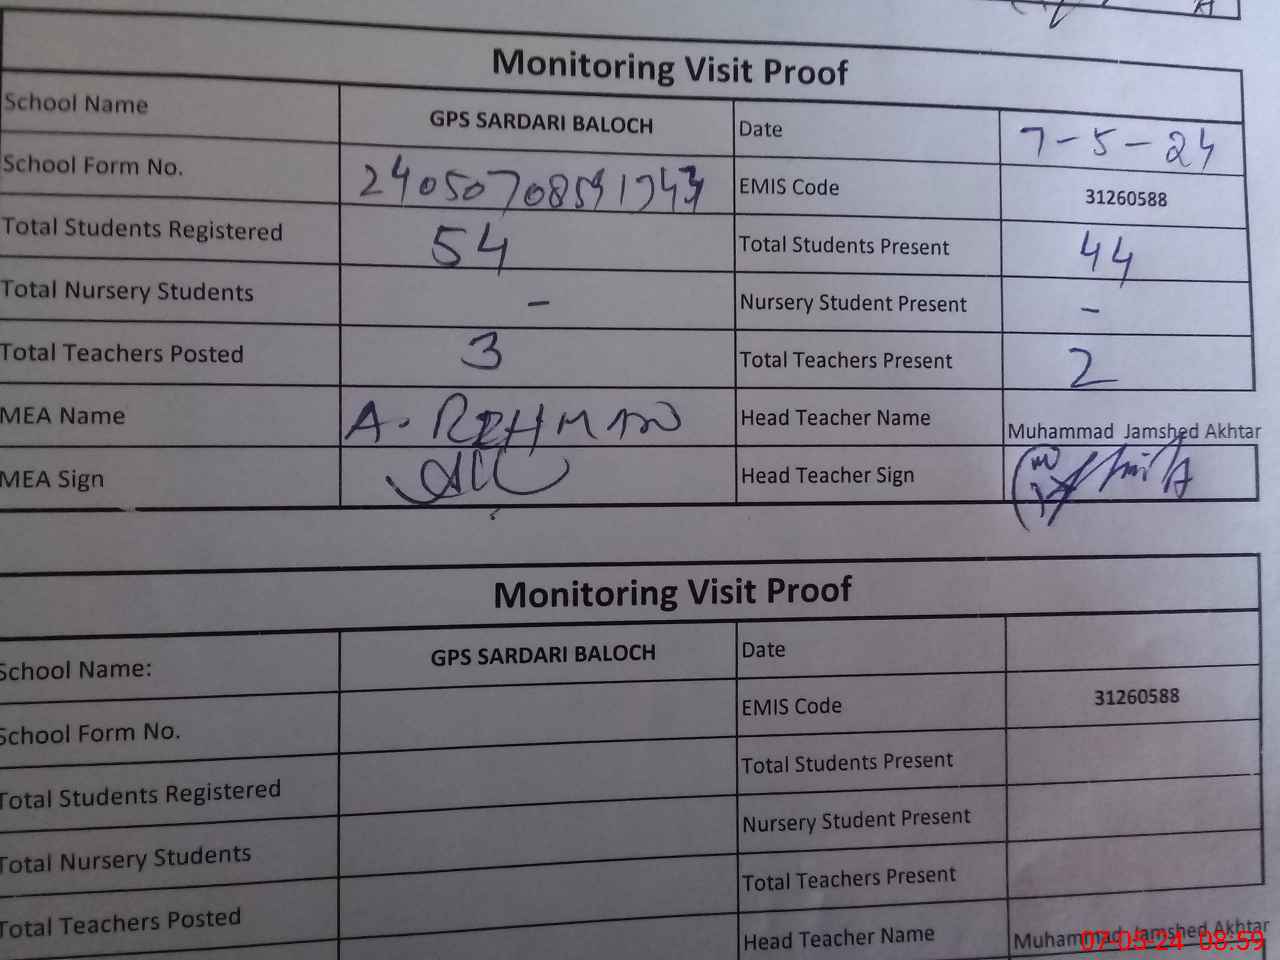 Monitoring Visit Proof
School Name GPS SARDARI BALOCH Date 7-5-24
School Form No. EMIS Code 31260588
Total Students Registered 54 Total Students Present 44
Total Nursery Students - Nursery Student Present -
Total Teachers Posted 3 Total Teachers Present 2
MEA Name A. REHMAN Head Teacher Name Muhammad Jamshed Akhtar
MEA Sign Head Teacher Sign
Monitoring Visit Proof
School Name: GPS SARDARI BALOCH Date
School Form No. EMIS Code 31260588
Total Students Registered Total Students Present
Total Nursery Students Nursery Student Present
Total Teachers Posted Total Teachers Present
Head Teacher Name Muhammad Jamshed Akhtar
07-05-24 08:59